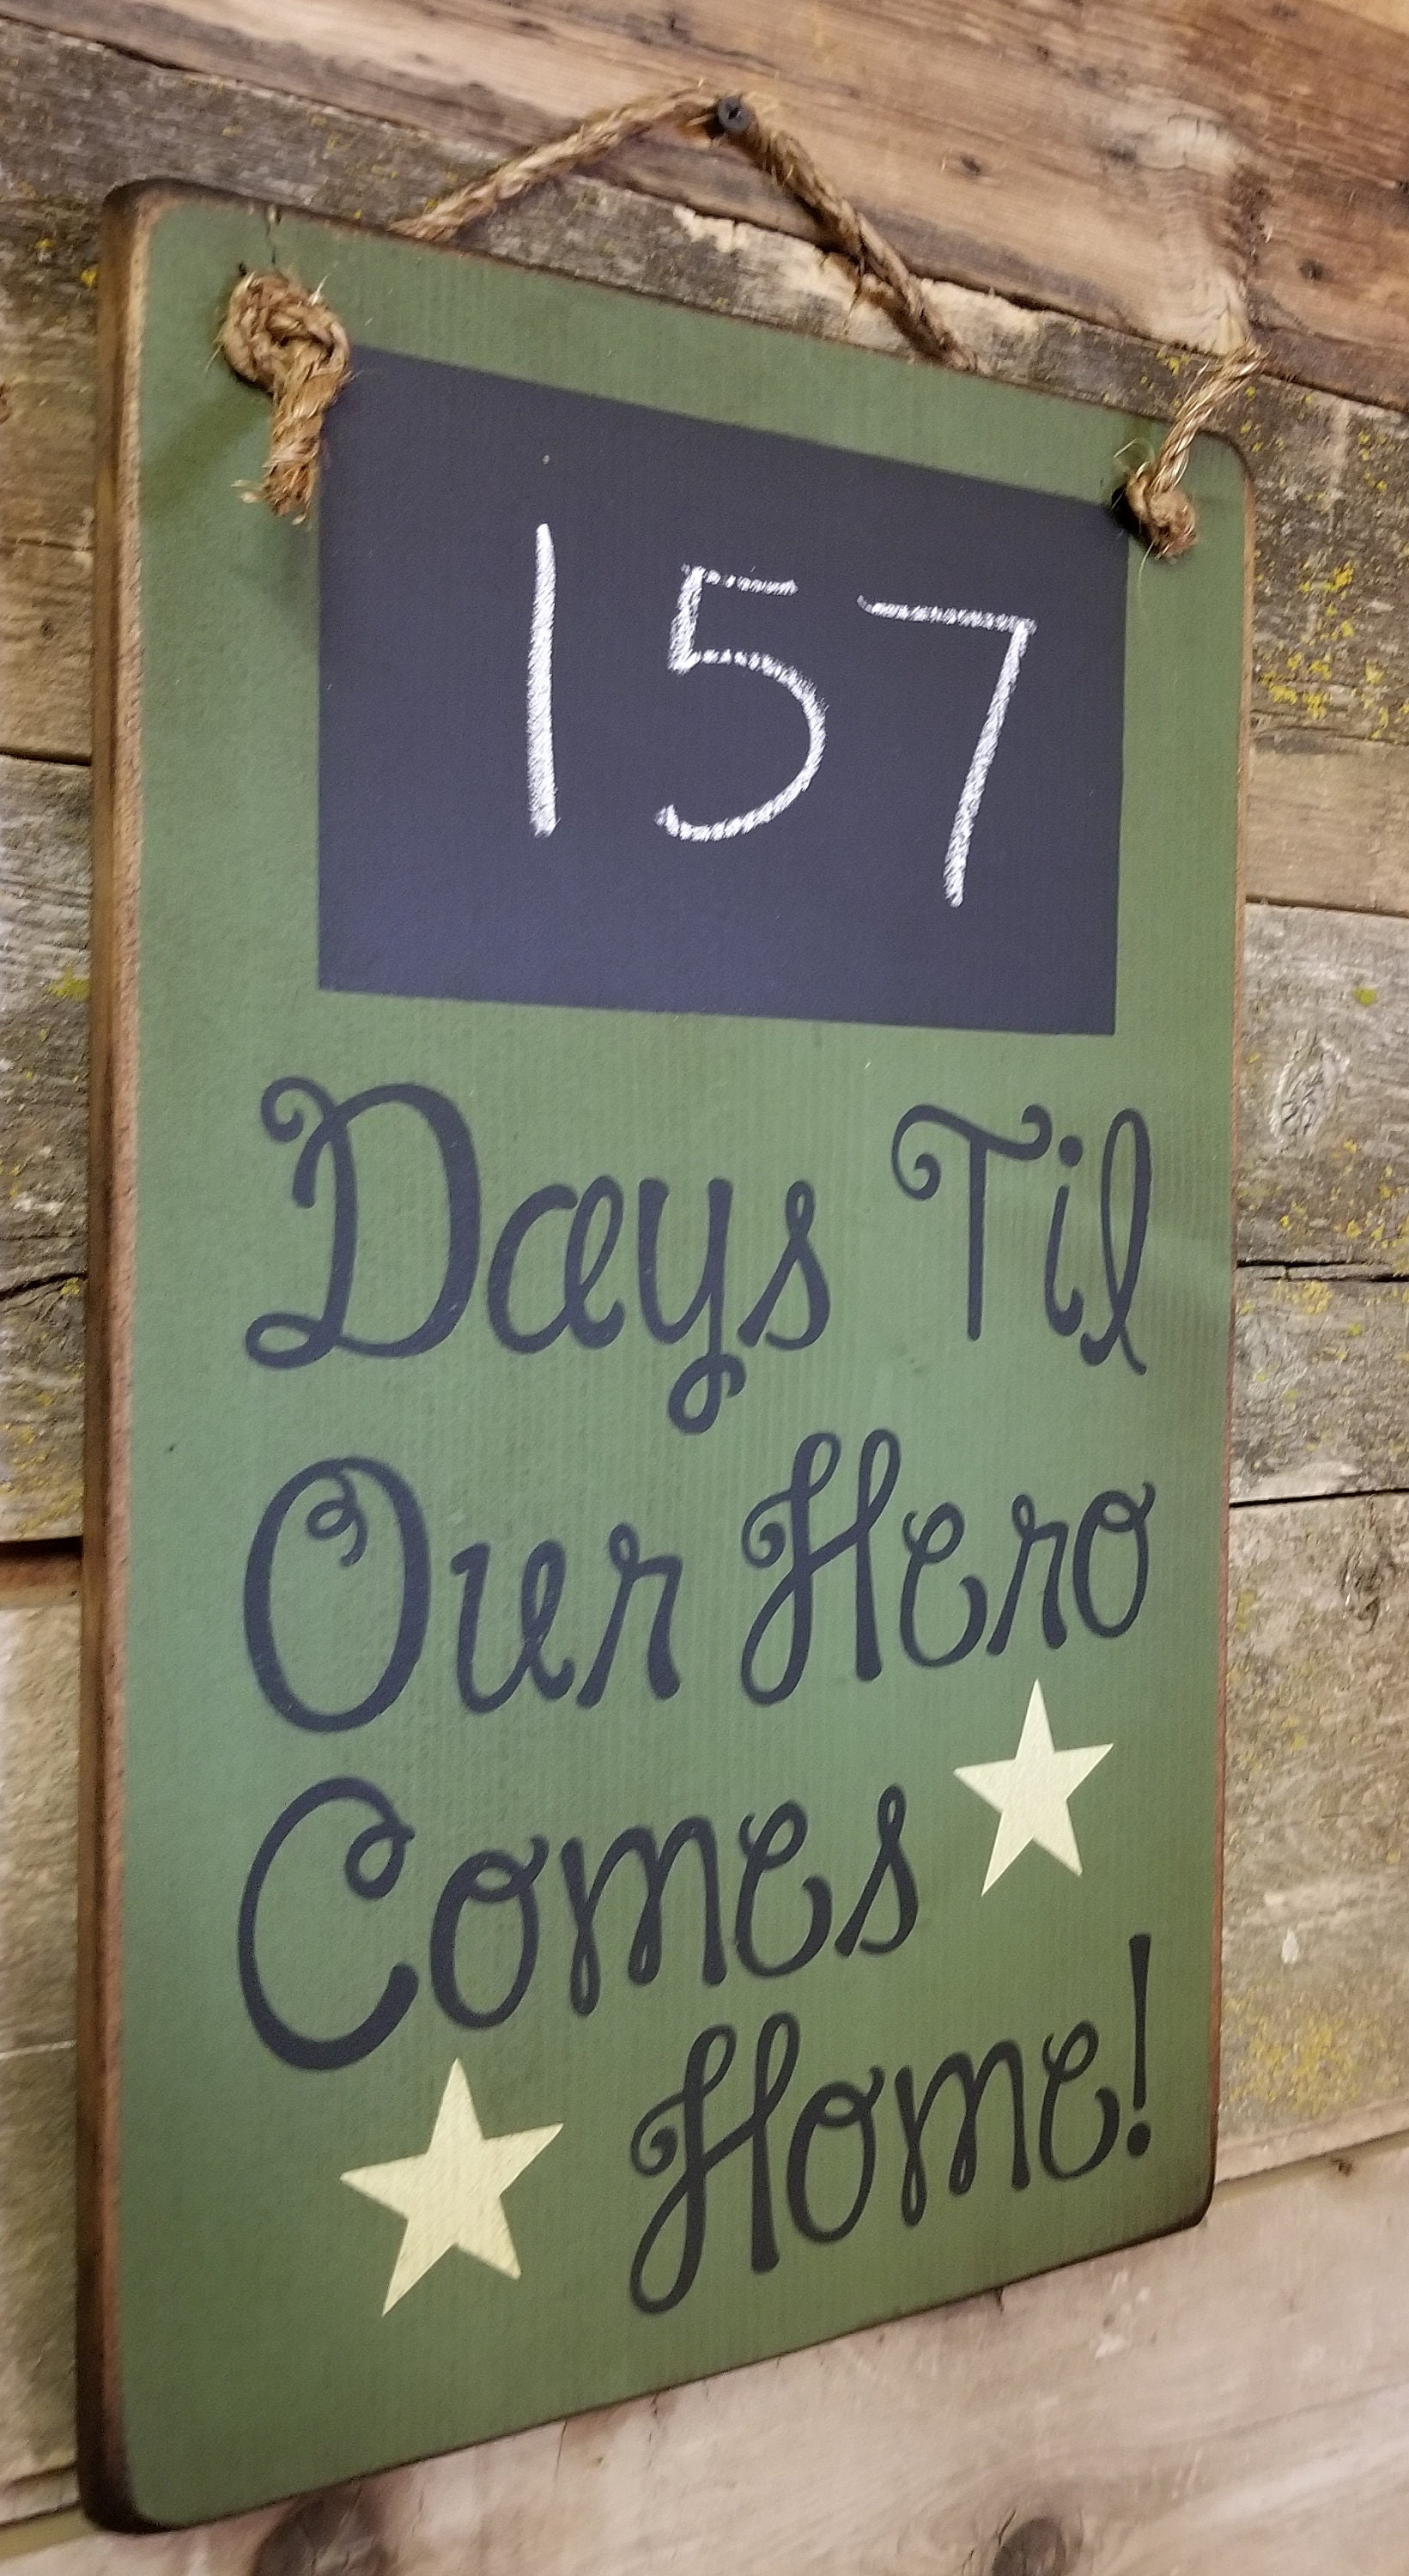 157
Days Til
Our Hero
Comes
Home!